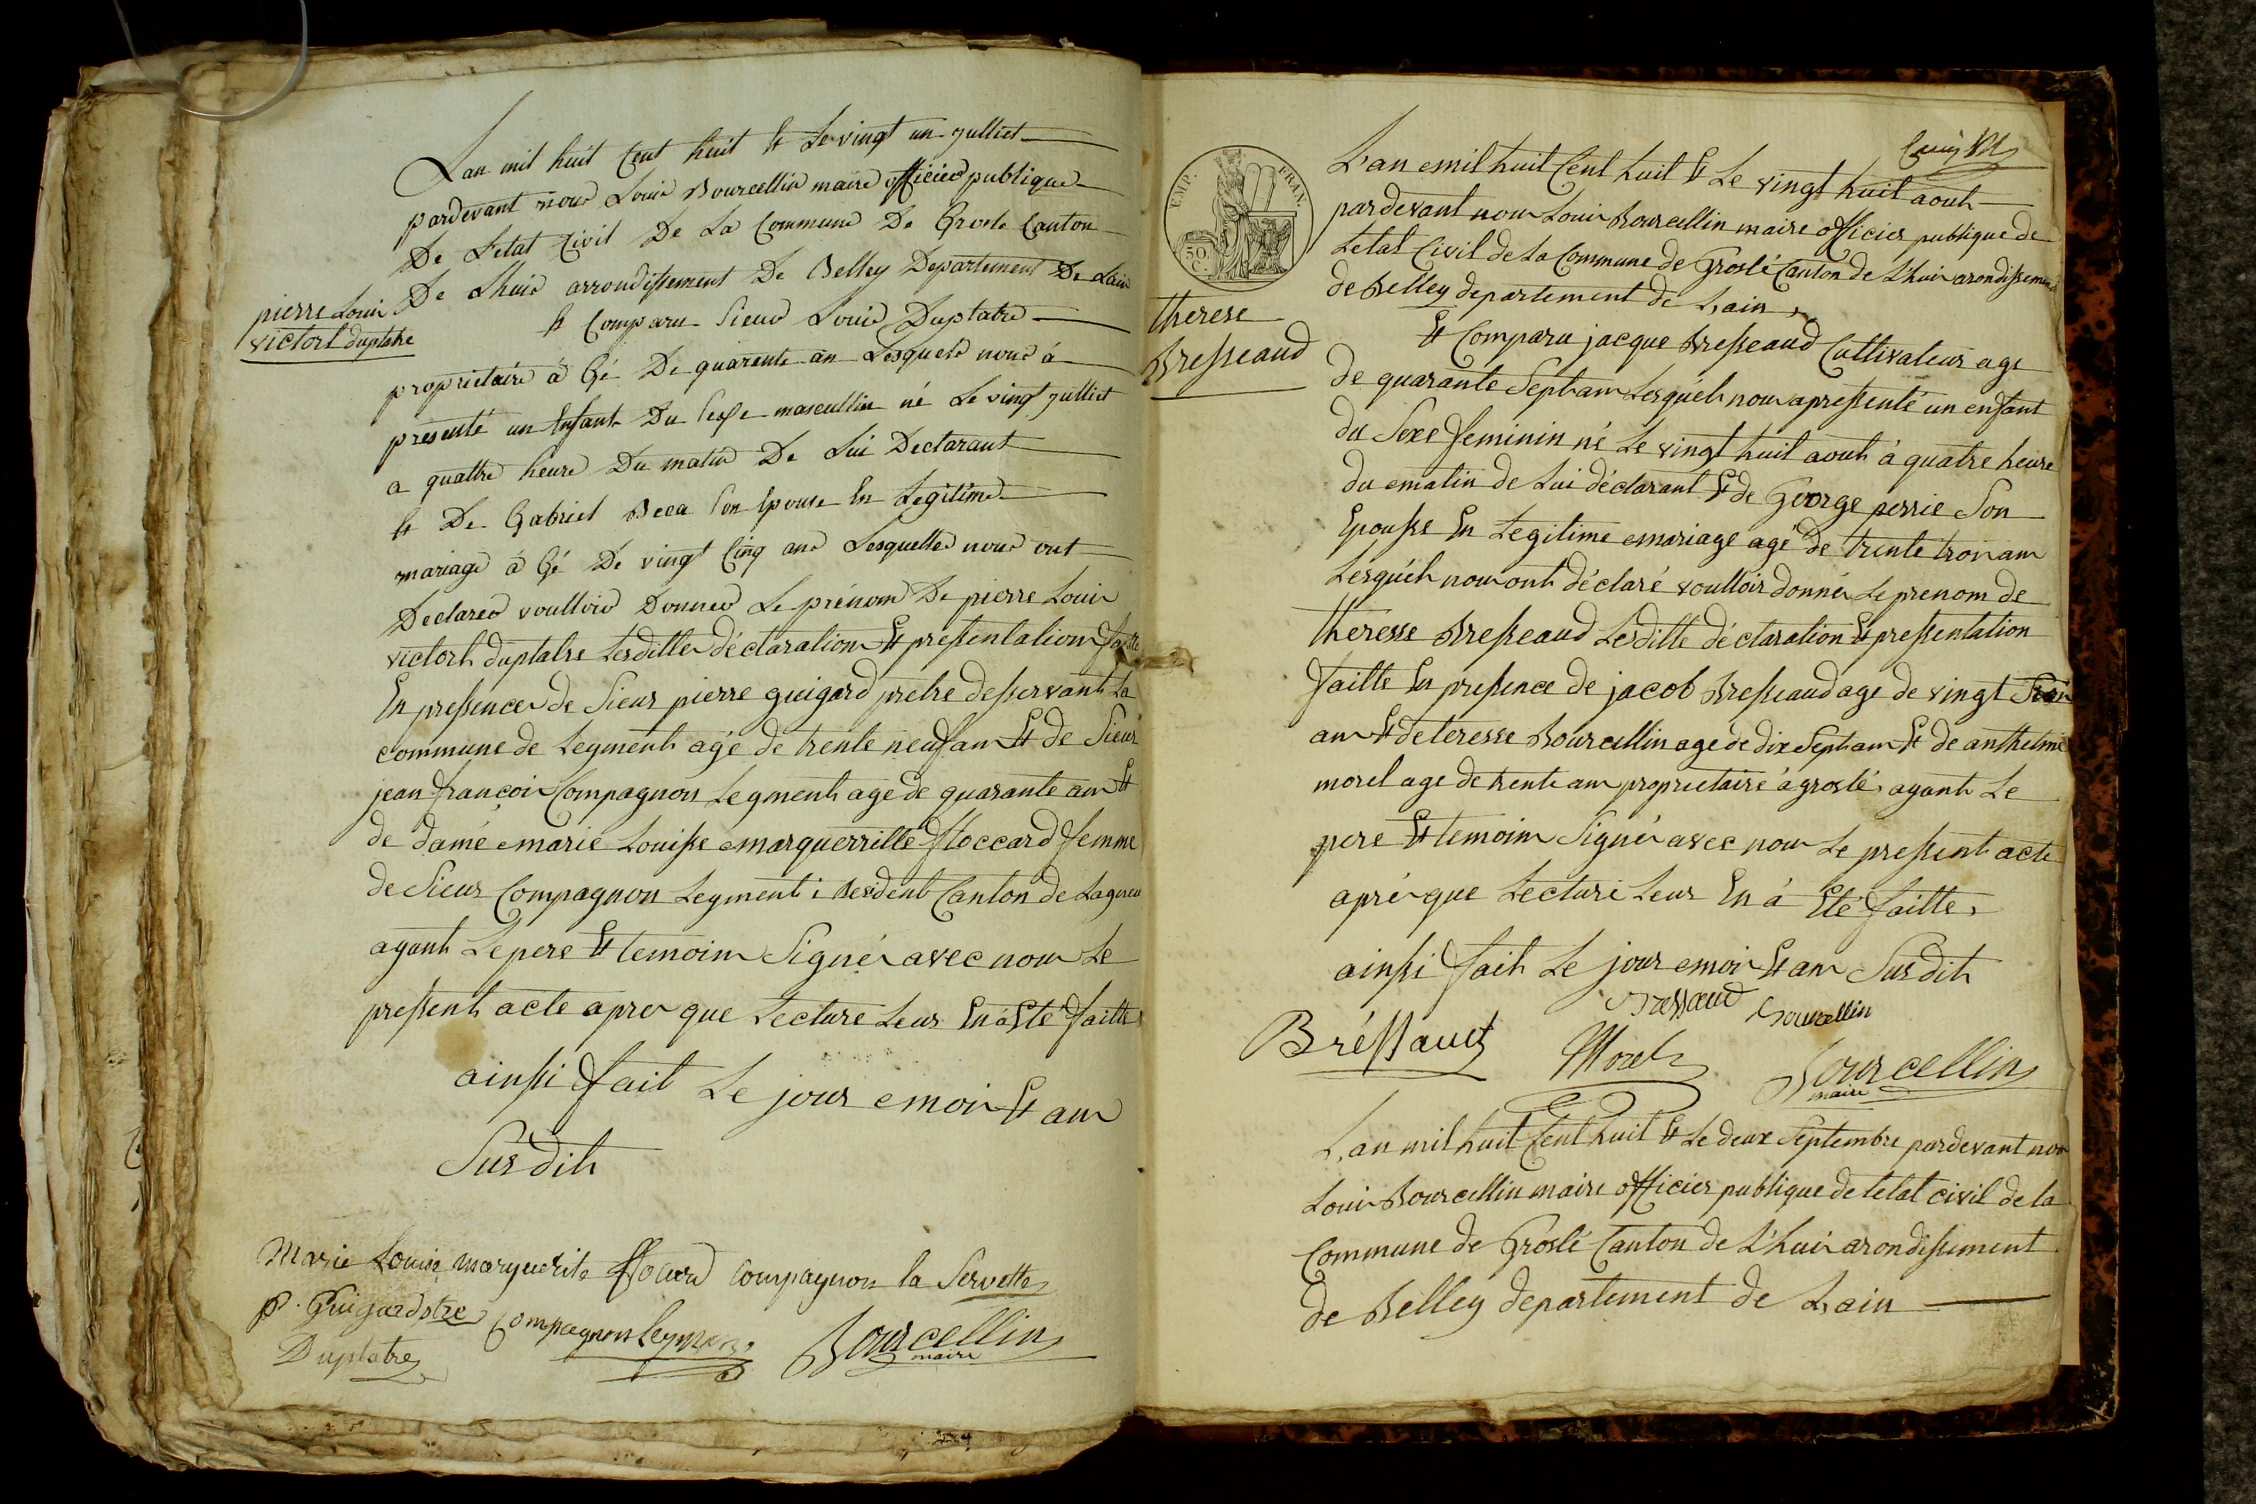 Lan mil huit Cent huit et Le vingt un julliet
pardevant nous Louis Bourcellin maire officier publique
De L'etat Civil De La Commune De Grosle Canton
De Lhuis arrondissement De Belley Departement De Lain
pierre Louis
victort duplatre
et Comparu Sieur Louis Duplatre
propriétaire a Gé De quarente an Lesquels nous á
présenté un Enfant Du Sexe mascullin né Le vingt julliet
a quattre heure Du matin De Lui Declarant
et De Gabriel Son Epouse En Legitime
mariage á Gé De vingt Cinq ans Lesquelles nous ont
Declarer voulloir Donner Le prénom De pierre Louis
victort duplatre Lesditte déclaration Et pressentation faitte
En pressence de Sieur pierre guigard pretre desservant La
commune de Leyment agé de trente neuf ans Et de Sieur
jean françois Compagnon Leyment agé de quarante ans Et
de damé marie Louisse marguerritte floccard femme
de Sieur Compagnon Leyment Canton de Lagnieu
ayant Le pere Et temoins Signés avec nous Le
pressent acte apres que Lecture Leur En á Eté faitte
ainssi fait Le jour mois Et an
Sus dit
Marie Louise marguerite compagnon la Servette
P. Guigard ptre Compagnon Leyment
Duplatre Bourcellin
maire
EMP. FRAN.
50.
C.
L'an mil huit Cent huit Et Le vingt huit aout
pardevant nous Louis Bourcellin maire officier publique de
Letat Civil de La Commune de Groslé Canton de L'huis arondissement
de Belley departement de Lain
therese
Bresseaud
Et Comparu jacque Bresseaud Cultivateur age
de quarante Sept ans Lesquels nous apressenté un enfant
du Sexe feminin né Le vingt huit aout à quatre heure
du matin de Lui déclarant Et de George perrie Son
Epousse En Legitime mariage agé de trente trois ans
Lesquels nous ont déclaré voulloir donner Le prenom de
theresse Bresseaud Lesditte déclaration Et pressentation
faitte En pressence de jacob Bresseaud age de vingt
ans Et de teresse Bourcellin age de dix Sept ans Et de anthelme
morel age de trente ans proprietaire á groslé ayant Le
pere Et temoins Signés avec nous Le pressent acte
aprés que Lecture Leur En á Eté faitte
ainssi fait Le jour mois Et an Sus dit
Bressaud Bourcellin
Bréssaud Morel Bourcellin
maire
L'an mil huit Cent huit Et Le deux Septembre pardevant nous
Louis Bourcellin maire officier publique de Letat civil de la
Commune de Groslé Canton de L'huis arondissement
de Belley departement de Lain